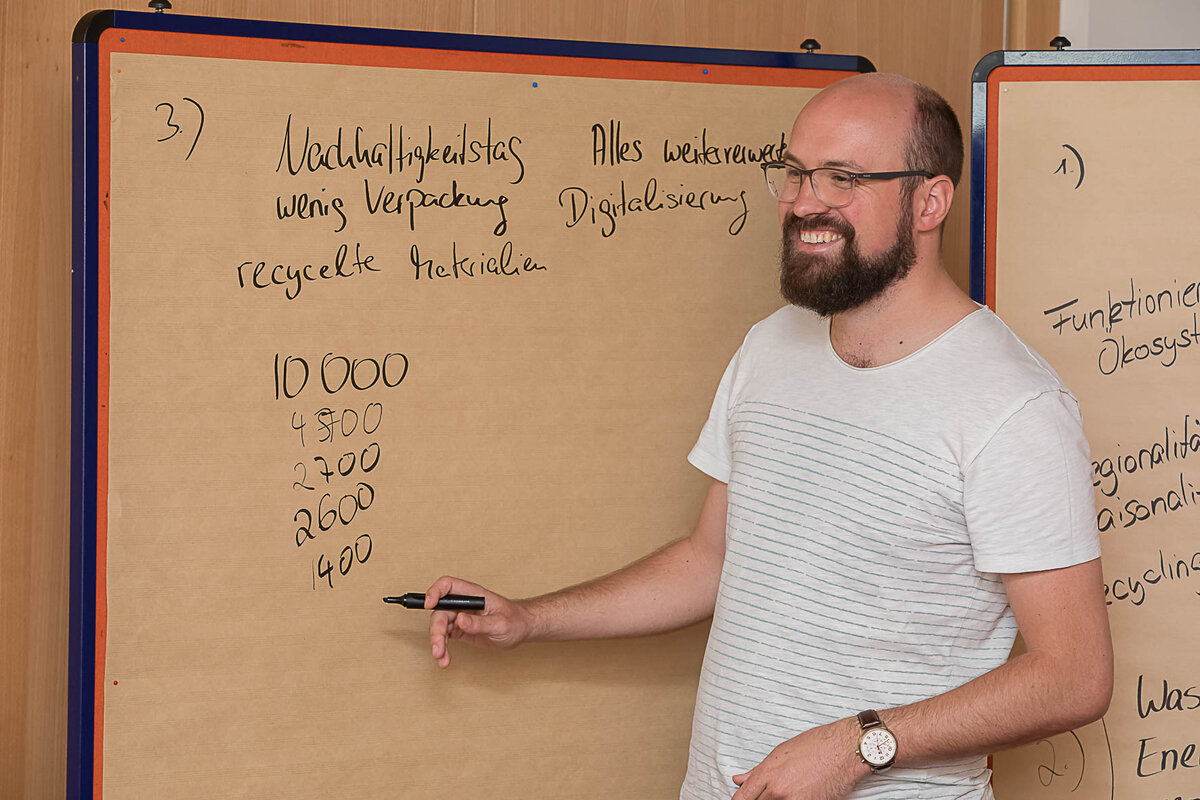 3.)
Nachhaltigkeitstag Alles weiterverwert
wenig Verpackung Digitalisierung
recycelte Materialien
10 000
2700
2600
1400
1.)
Funktionier
Ökosyst
egionalitä
aisonali
ecycling
Was
Ene
2.)